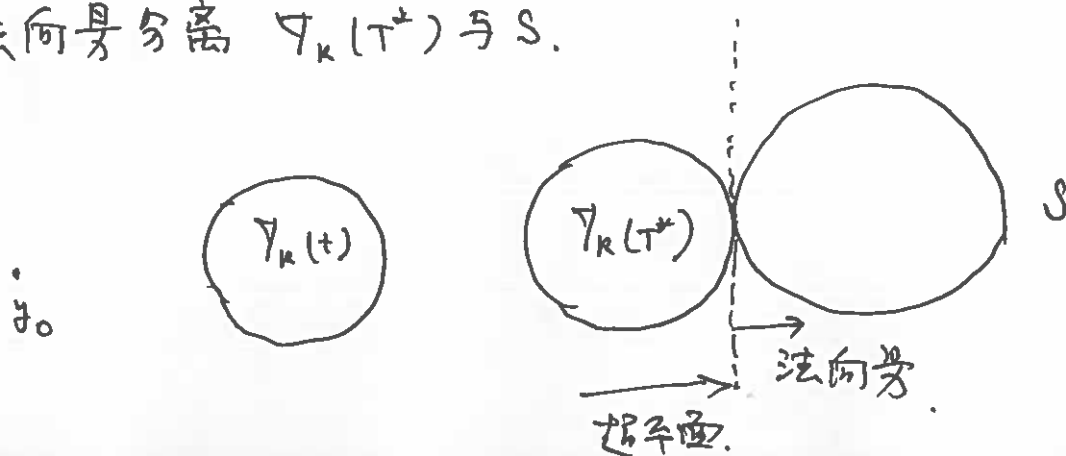 法向量分离 Y_k(T*) 与 S.
Y_k(t)
Y_k(T*)
S
y_0
法向量.
超平面.